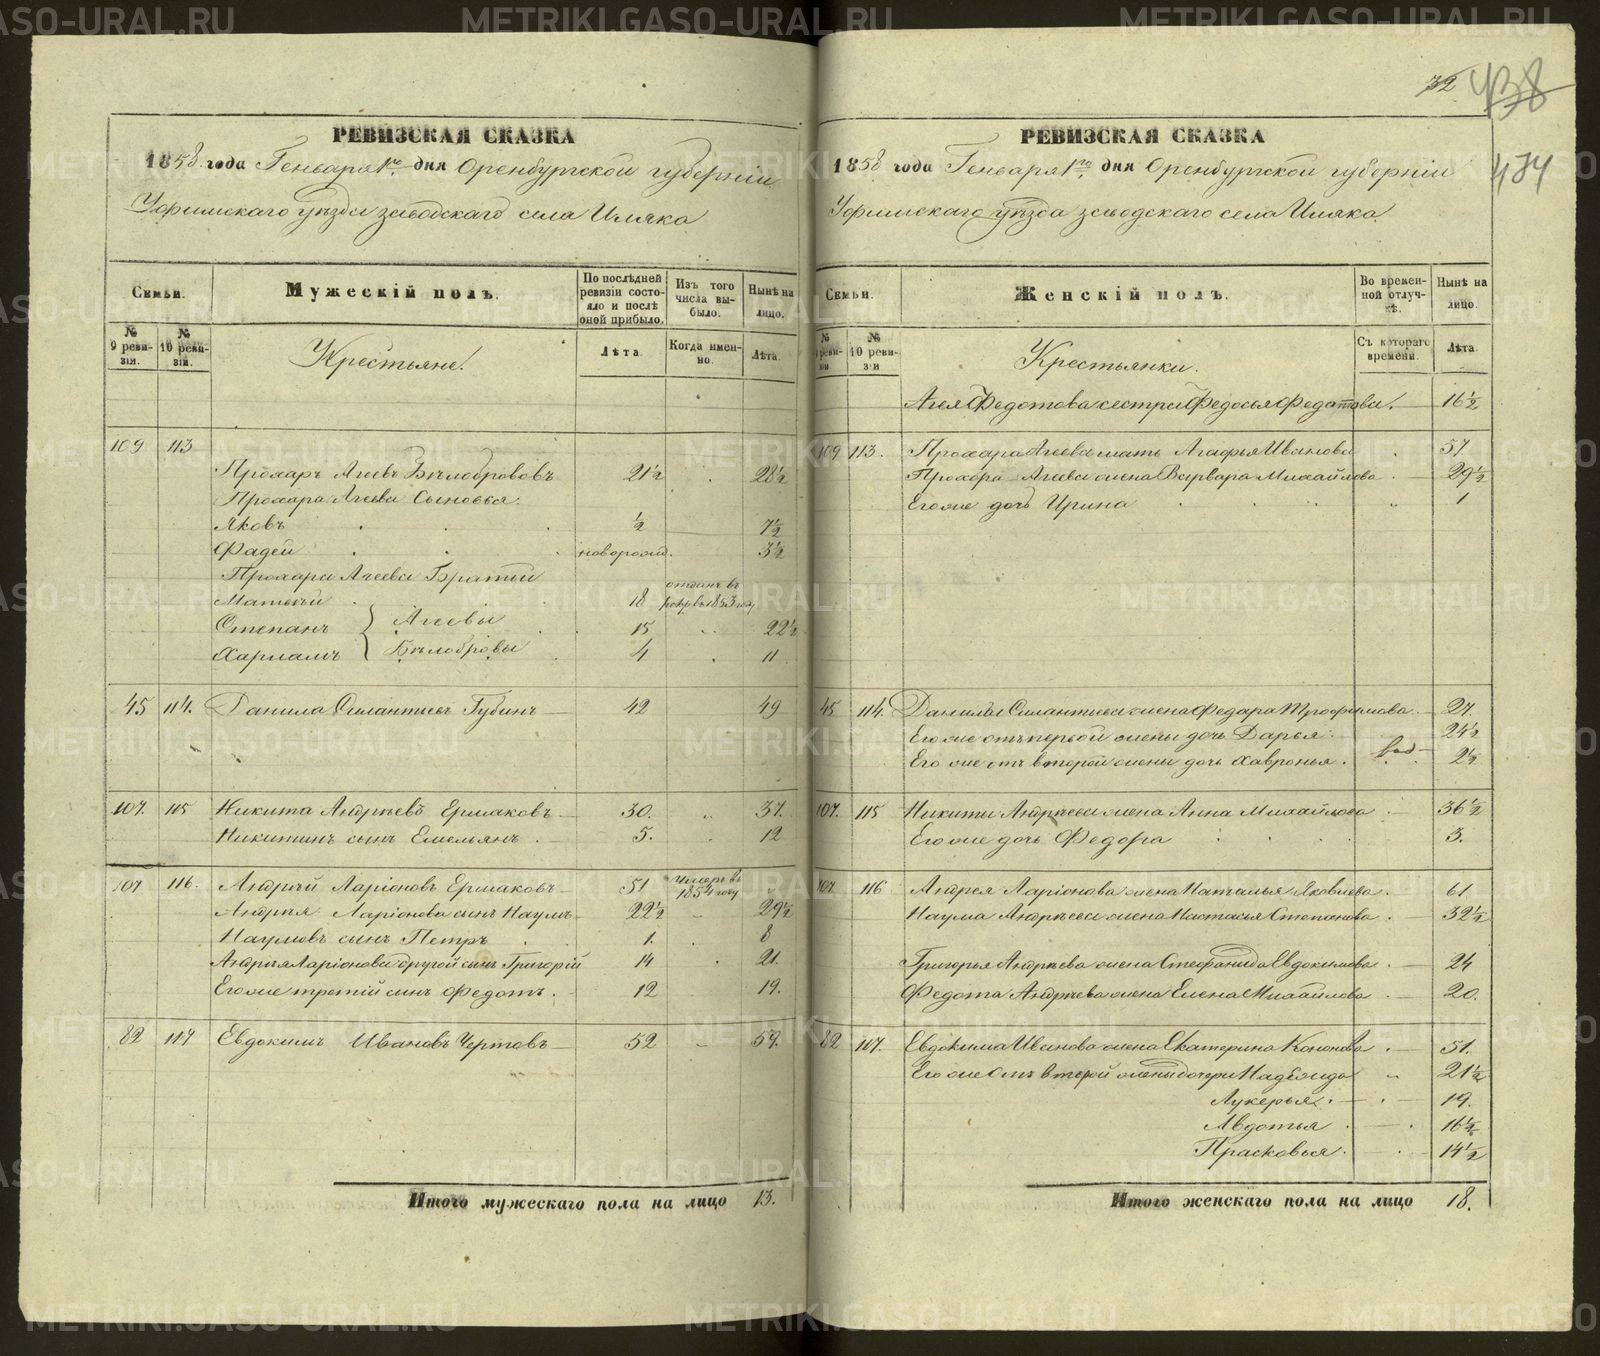 РЕВИЗСКАЯ СКАЗКА
1858. года Генваря 1го. дня Оренбургской губерніи
Уфимскаго уѣзда заводскаго села Иляка
Семьи.
Мужескій полъ.
По послѣдней ревизіи состояло и послѣ оной прибыло.
Изъ того числа выбыло.
Нынѣ на лицо.
№ 9 ревизія.
№ 10 ревизіи.
Крестьяне.
Лѣта.
Когда именно.
Лѣта.
109 113
Прохаръ Агѣевъ Бѣлобрововъ 21½ 28½
Прохара Агѣева сыновья
Яковъ ½ 7½
Фадей новорожд. 3½
Прохара Агѣева братьи
Матвѣй 18 отданъ въ рекр. въ 1853 году
Степанъ Агѣевы 15 22½
Харламъ Бѣлобровы 4 11
45 114. Данила Силантьевъ Губинъ 42 49
107. 115 Никита Андрѣевъ Ермаковъ 30. 37.
Никитинъ сынъ Емельянъ 5. 12
107 116. Андрей Ларіоновъ Ермаковъ 51 Умеръ въ 1854 году
Андрѣя Ларіонова сынъ Наумъ 22½ 29½
Наумовъ сынъ Петръ 1. 8
Андрѣя Ларіонова другой сынъ Григорій 14 21.
Его же третій сынъ Федотъ. 12 19.
82 117 Евдокимъ Ивановъ Чертовъ 52 59.
Итого мужескаго пола на лицо 13.
32 438
434
РЕВИЗСКАЯ СКАЗКА
1858 года Генваря 1го. дня Оренбургской губерніи
Уфимскаго уѣзда заводскаго села Иляка.
Семьи.
Женскій полъ.
Во временной отлучкѣ.
Нынѣ на лицо.
№ ревизіи
№ 10 ревизіи
Крестьянки.
Съ котораго времени.
Лѣта.
Агея Федотова сестра Федосья Федотова. 16½
109 113. Прохара Агѣева мать Агафья Иванова 57
Прохора Агѣева жена Варвара Михайлова 29½
Его же дочь Ирина 1
45 114. Данилы Силантьева жена Федора Трофимова 27.
Его же отъ первой жены дочь Дарья. 24½
Его же отъ второй жены дочь Хавронья. 2½
107. 115 Никиты Андрѣева жена Анна Михайлова 36½
Его же дочь Федора 3.
107 116 Андрея Ларіонова жена Наталья Яковлева. 61.
Наума Андрѣева жена Настасья Степанова 32½
Григорья Андрѣева жена Стефанида Евдокимова. 24
Федота Андрѣева жена Елена Михайлова 20.
82 117. Евдокима Иванова жена Екатерина Кононова 51.
Его же отъ второй жены дочери Надежда 21½
Лукерья. 19.
Авдотья 16½
Прасковья. 14½
Итого женскаго пола на лицо 18.
METRIKI.GASO-URAL.RU